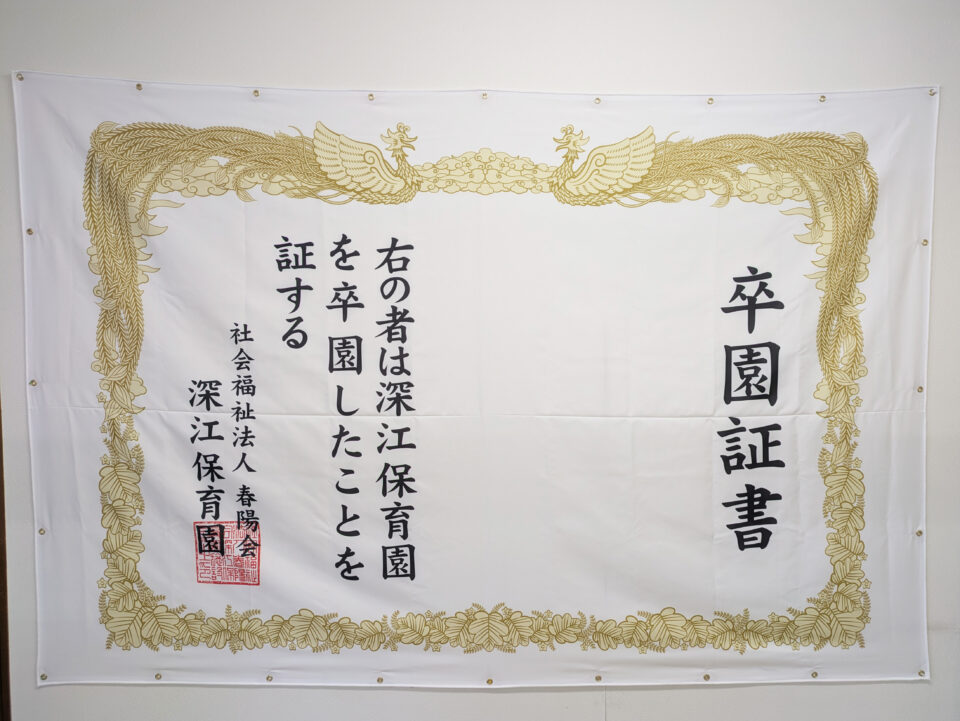 卒園証書
右の者は深江保育園
を卒園したことを
証する
社会福祉法人 春陽会
深江保育園